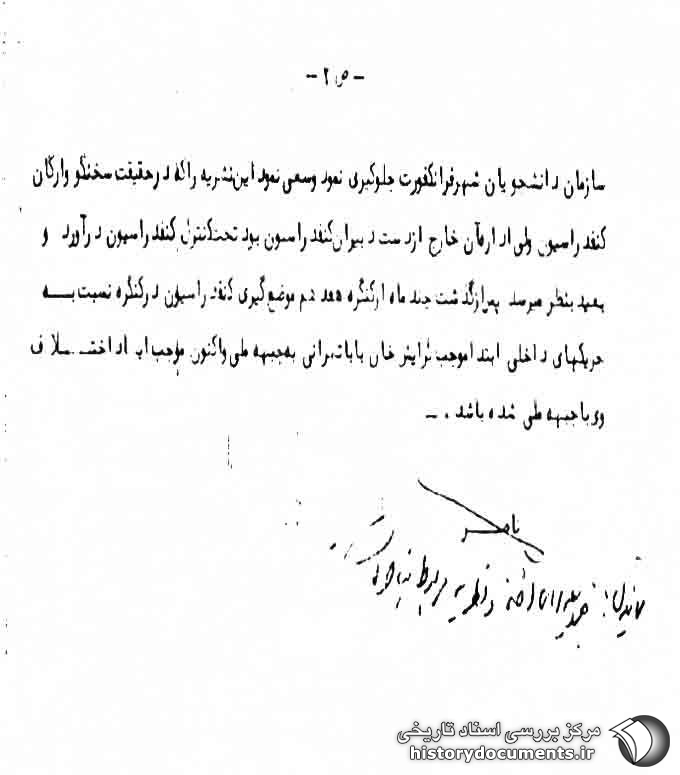 - ص ۲ -
سازمان دانشجویان شهر فرانکفورت جلوگیری نمود وسعی نمود این نشریه راکه در حقیقت سخنگو وارگان
کنفدراسیون ولی از آن خارج ازدست دبیران کنفدراسیون بود تحت کنترل کنفدراسیون درآورد و
بعید بنظر میرسد پس ازگذشت چند ماه ازکنگره هفدهم موضع گیری کنفدراسیون درکنگره نسبت به
حریکهای داخلی ابتدا موجب گرایش خان باباتهرانی به جبهه ملی واکنون موجب اختلاف
وی باجبهه ملی شده باشد . -
ناصر
مرکز بررسی اسناد تاریخی
historydocuments.ir